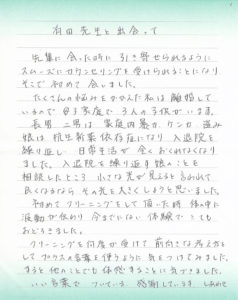 有田先生と出会って
先生に会った時に引き寄せられるように
スムーズにカウンセリングを受けられることになり
そこで初めて会いました。
たくさんの悩みをかかえた私は離婚して
いるので母子家庭で3人の子供がいます。
長男 二男は家庭内暴力、ケンカ 盗み
娘は抗生新薬依存症になり入退院を
繰り返し 日常生活が全くおくれなくなり
ました。入退院を繰り返す娘のことも
相談したところ 小さな光が見えると言われて
良くなるなら その光を大きくしようと思いました。
初めてクリーニングをして頂いた時 体の中に
波動が伝わり 今までにない体験でとても
おどろきました。
クリーニングを何度か受けて前向きな考え方を
してプラスの言葉を使うように気をつけてみました。
すると他のことでも体感することに気づきました。
いい言葉で ついている 感謝しています しあわせ